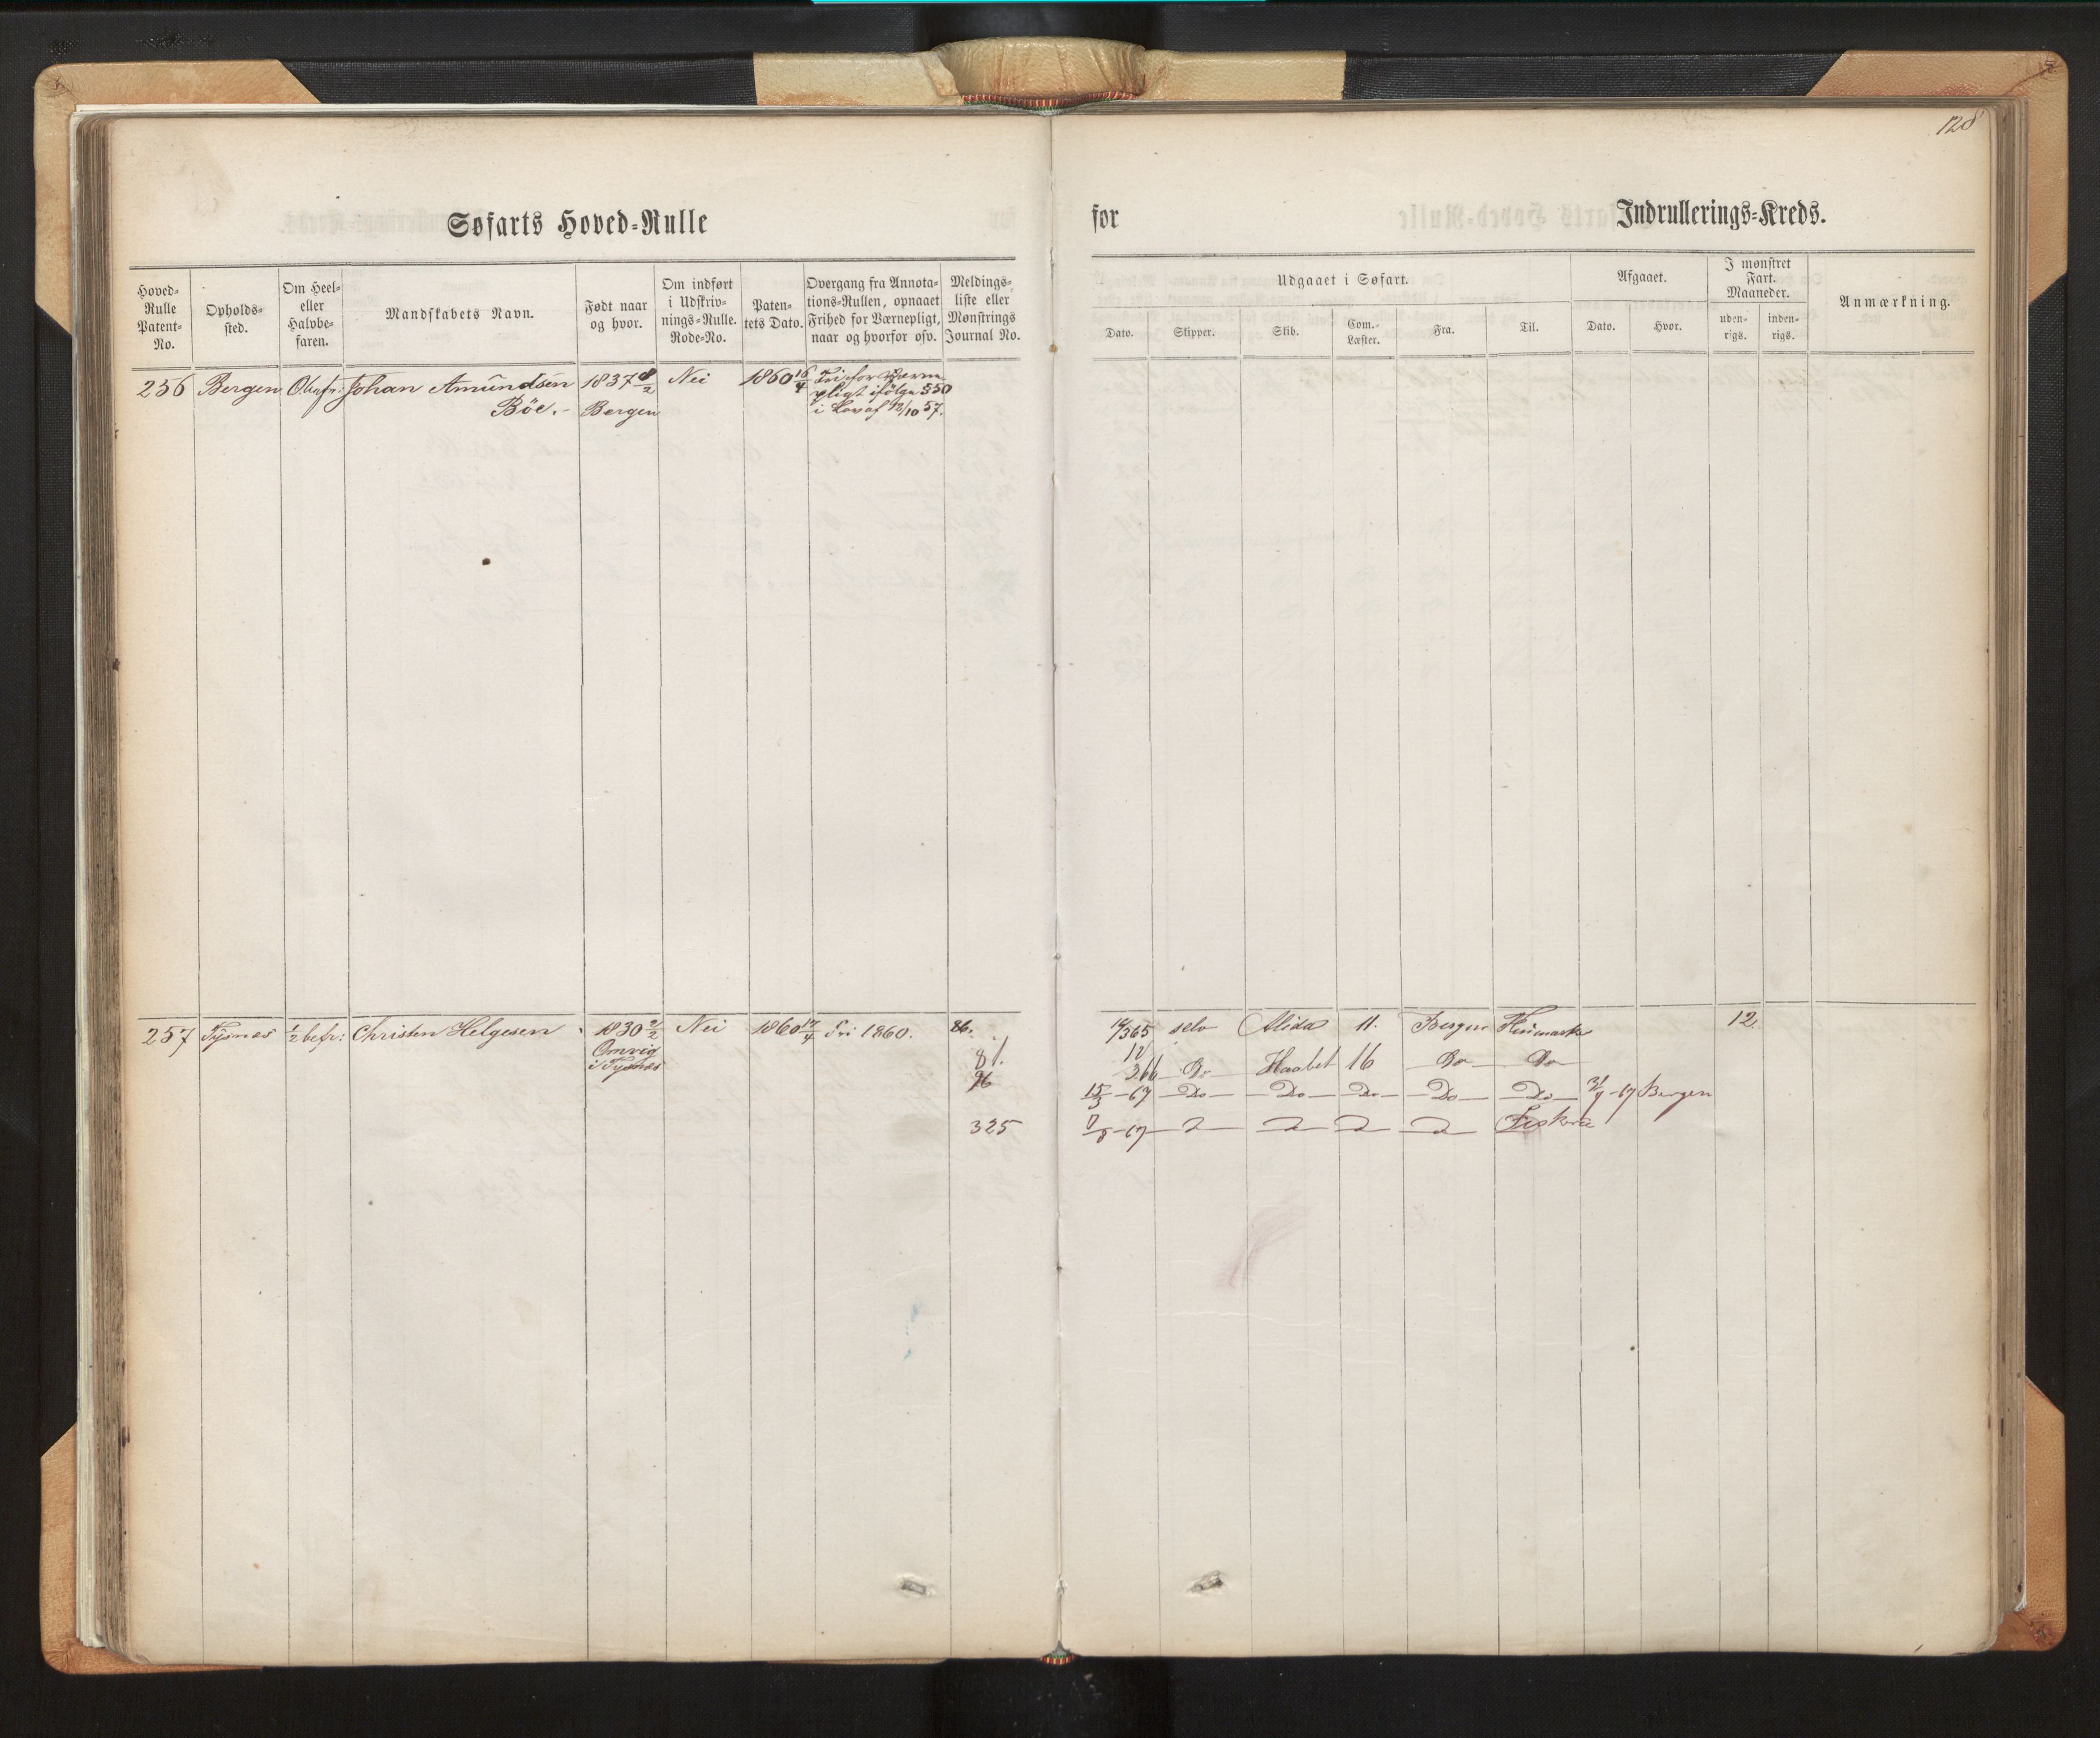 128
Søfarts Hoved-Rulle
for
Indrullerings-Kreds.
Hoved-Rulle Patent-No.
Opholds-sted.
Om Heel- eller Halvbe-faren.
Mandskabets Navn.
Født naar og hvor.
Om indført i Udskriv-nings-Rulle. Rode-No.
Paten-tets Dato.
Overgang fra Annota-tions-Rullen, opnaaet Frihed for Værnepligt, naar og hvorfor osv.
Meldings-liste eller Mønstrings Journal No.
Udgaaet i Søfart.
Dato.
Skipper.
Skib.
Com.-Læster.
Fra.
Til.
Afgaaet.
Dato.
Hvor.
I mønstret Fart. Maaneder.
uden-rigs.
inden-rigs.
Anmærkning.
256 Bergen Ubefr: Johan Amundsen 1837 8/2 Nei 1860 16/4 Fri for Værne
Böe.- Bergen pligt ifölge §50
i Lov af 12/10 57.
257 Tysnes 1/2 befr: Christen Helgesen 1830 2/2 Nei 1860 17/4 Fri 1860. 86. 14/3 65 selv Alida 11. Bergen Finmarken 12.
Omvig
i Tysnes
81. 12/3 66 Do Haabet 16 Do Do
96 15/3 - 67 Do Do Do Do Do 31/7 - 67 Bergen
325 7/8 - 67 Fiskeri